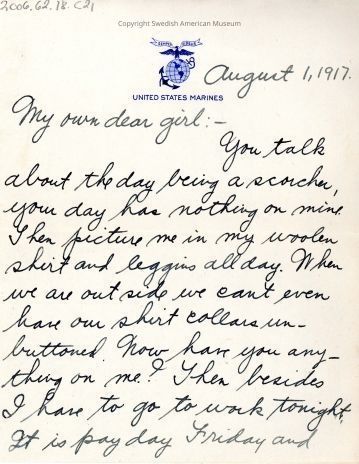 2006.62.18.C21
Copyright Swedish American Museum
SEMPER FIDELIS
UNITED STATES MARINES
August 1, 1917.
My own dear girl:-
You talk
about the day being a scorcher,
your day has nothing on mine.
Then picture me in my woolen
shirt and leggins all day. When
we are out side we cant even
have our shirt collars un-
buttoned. Now have you any-
thing on me? Then besides
I have to go to work tonight.
It is pay day Friday and